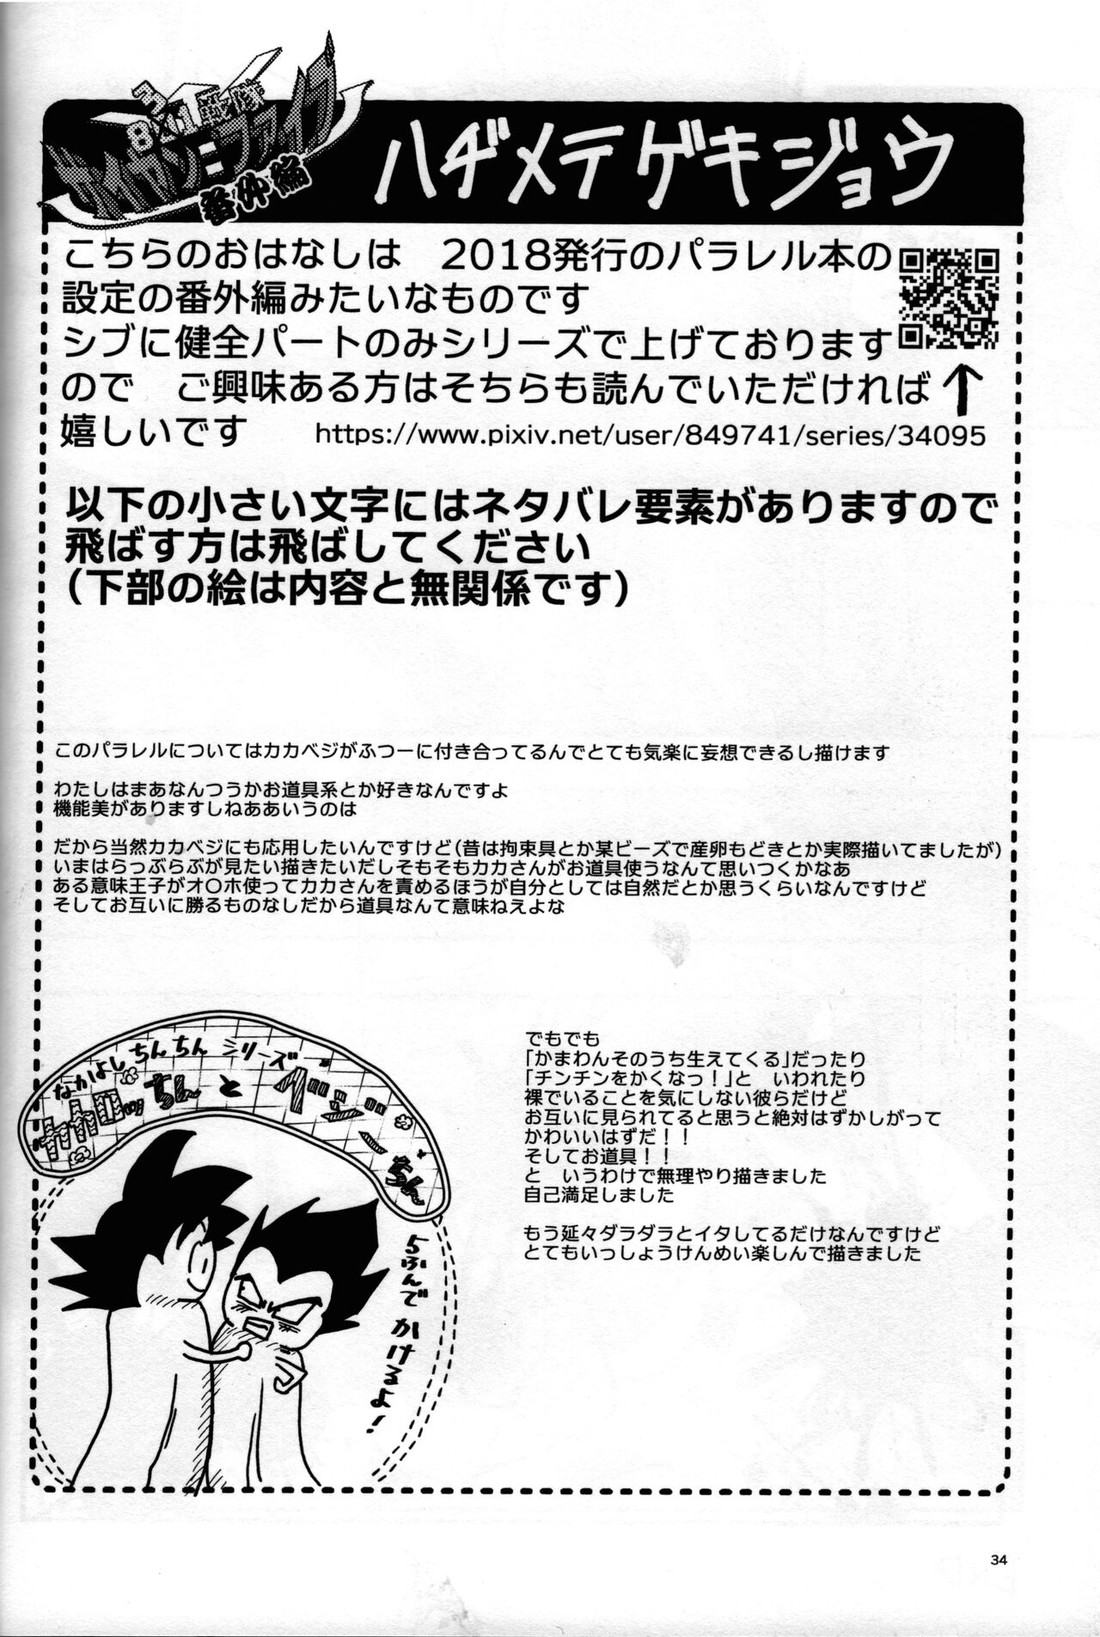 3
8×1 戦隊
サイヤン＝ファイブ
番外編
ハヂメテゲキジョウ
こちらのおはなしは　2018発行のパラレル本の
設定の番外編みたいなものです
シブに健全パートのみシリーズで上げております
ので　ご興味ある方はそちらも読んでいただければ
嬉しいです　https://www.pixiv.net/user/849741/series/34095
以下の小さい文字にはネタバレ要素がありますので
飛ばす方は飛ばしてください
（下部の絵は内容と無関係です）
このパラレルについてはカカベジがふつーに付き合ってるんでとても気楽に妄想できるし描けます
わたしはまあなんつうかお道具系とか好きなんですよ
機能美がありますしねああいうのは
だから当然カカベジにも応用したいんですけど（昔は拘束具とか某ビーズで産卵もどきとか実際描いてましたが）
いまはらっぶらぶが見たい描きたいだしそもそもカカさんがお道具使うなんて思いつくかなあ
ある意味王子がオ〇ホ使ってカカさんを責めるほうが自分としては自然だとか思うくらいなんですけど
そしてお互いに勝るものなしだから道具なんて意味ねえよな
でもでも
「かまわんそのうち生えてくる」だったり
「チンチンをかくなっ！」と　いわれたり
裸でいることを気にしない彼らだけど
お互いに見られてると思うと絶対はずかしがって
かわいいはずだ！！
そしてお道具！！
と　いうわけで無理やり描きました
自己満足しました
もう延々ダラダラとイタしてるだけなんですけど
とてもいっしょうけんめい楽しんで描きました
なかよしちんちんシリーズ
カカロッちんとベジーちん
5ふんでかけるよ！
34